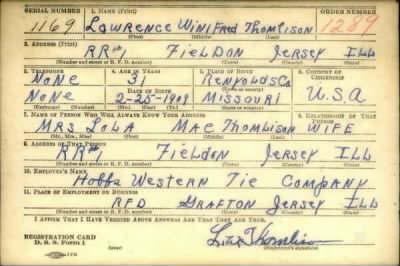 SERIAL NUMBER 1. NAME (Print) ORDER NUMBER
1169 LAWRENCE WINIFRED THOMLISON 1289
(First) (Middle) (Last)
2. ADDRESS (Print)
RR#1 FIELDON JERSEY ILL
(Number and street or R. F. D. number) (Town) (County) (State)
3. TELEPHONE 4. AGE IN YEARS 5. PLACE OF BIRTH 6. COUNTRY OF CITIZENSHIP
NONE 31 RENYOLDS CO
DATE OF BIRTH (Town or county)
NONE 2-25-1909 MISSOURI U.S.A
(Exchange) (Number) (Mo.) (Day) (Yr.) (State or country)
7. NAME OF PERSON WHO WILL ALWAYS KNOW YOUR ADDRESS 8. RELATIONSHIP OF THAT PERSON
MRS LOLA MAE THOMLISON WIFE
(Mr., Mrs., Miss) (First) (Middle) (Last)
9. ADDRESS OF THAT PERSON
RR#1 FIELDON JERSEY ILL
(Number and street or R. F. D. number) (Town) (County) (State)
10. EMPLOYER'S NAME
HOBBS WESTERN TIE COMPANY
11. PLACE OF EMPLOYMENT OR BUSINESS
RFD GRAFTON JERSEY ILL
(Number and street or R. F. D. number) (Town) (County) (State)
I AFFIRM THAT I HAVE VERIFIED ABOVE ANSWERS AND THAT THEY ARE TRUE.
REGISTRATION CARD
D. S. S. Form 1 Thomlison
(Registrant's signature)